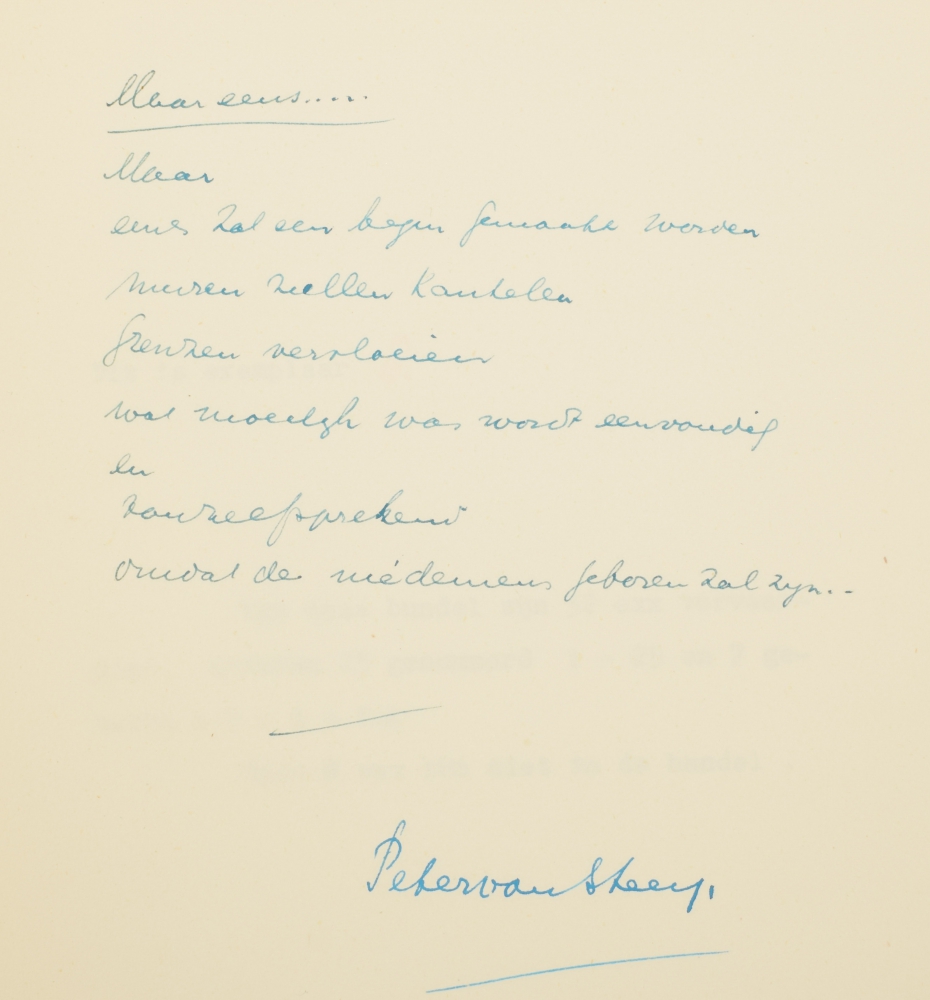 Maar eens.....
Maar
eens zal een begin gemaakt worden
muren zullen kantelen
grenzen vervloeien
wat moeilijk was wordt eenvoudig
en
vanzelfsprekend
omdat de médemens geboren zal zijn...
Peter van Steen.